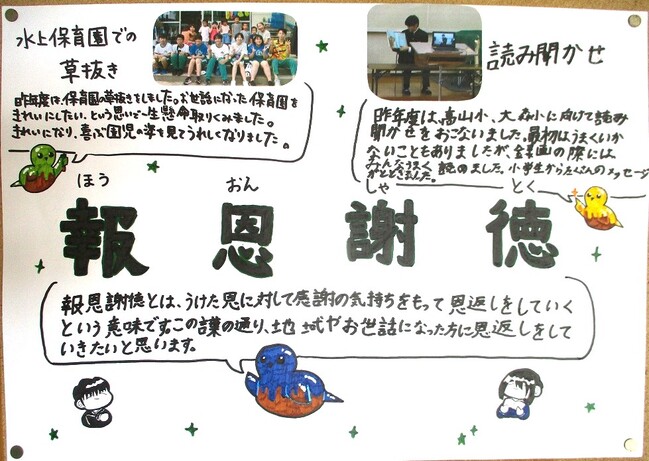 水上保育園での
草抜き
昨年度は、保育園の草抜きをしました。お世話になった保育園を
きれいにしたい、という思いで一生懸命取りくみました。
きれいになり、喜ぶ園児の姿を見てうれしくなりました。
読み聞かせ
昨年度は、高山小、大森小に向けて読み
聞かせをおこないました。最初はうまくいか
ないこともありましたが、録画の際には
みんなうまく読めました。小学生からたくさんのメッセージ
がとどきました。
ほう おん しゃ とく
報恩謝徳
報恩謝徳とは、うけた恩に対して感謝の気持ちをもって恩返しをしていく
という意味です。この言葉の通り、地域やお世話になった方に恩返しをして
いきたいと思います。